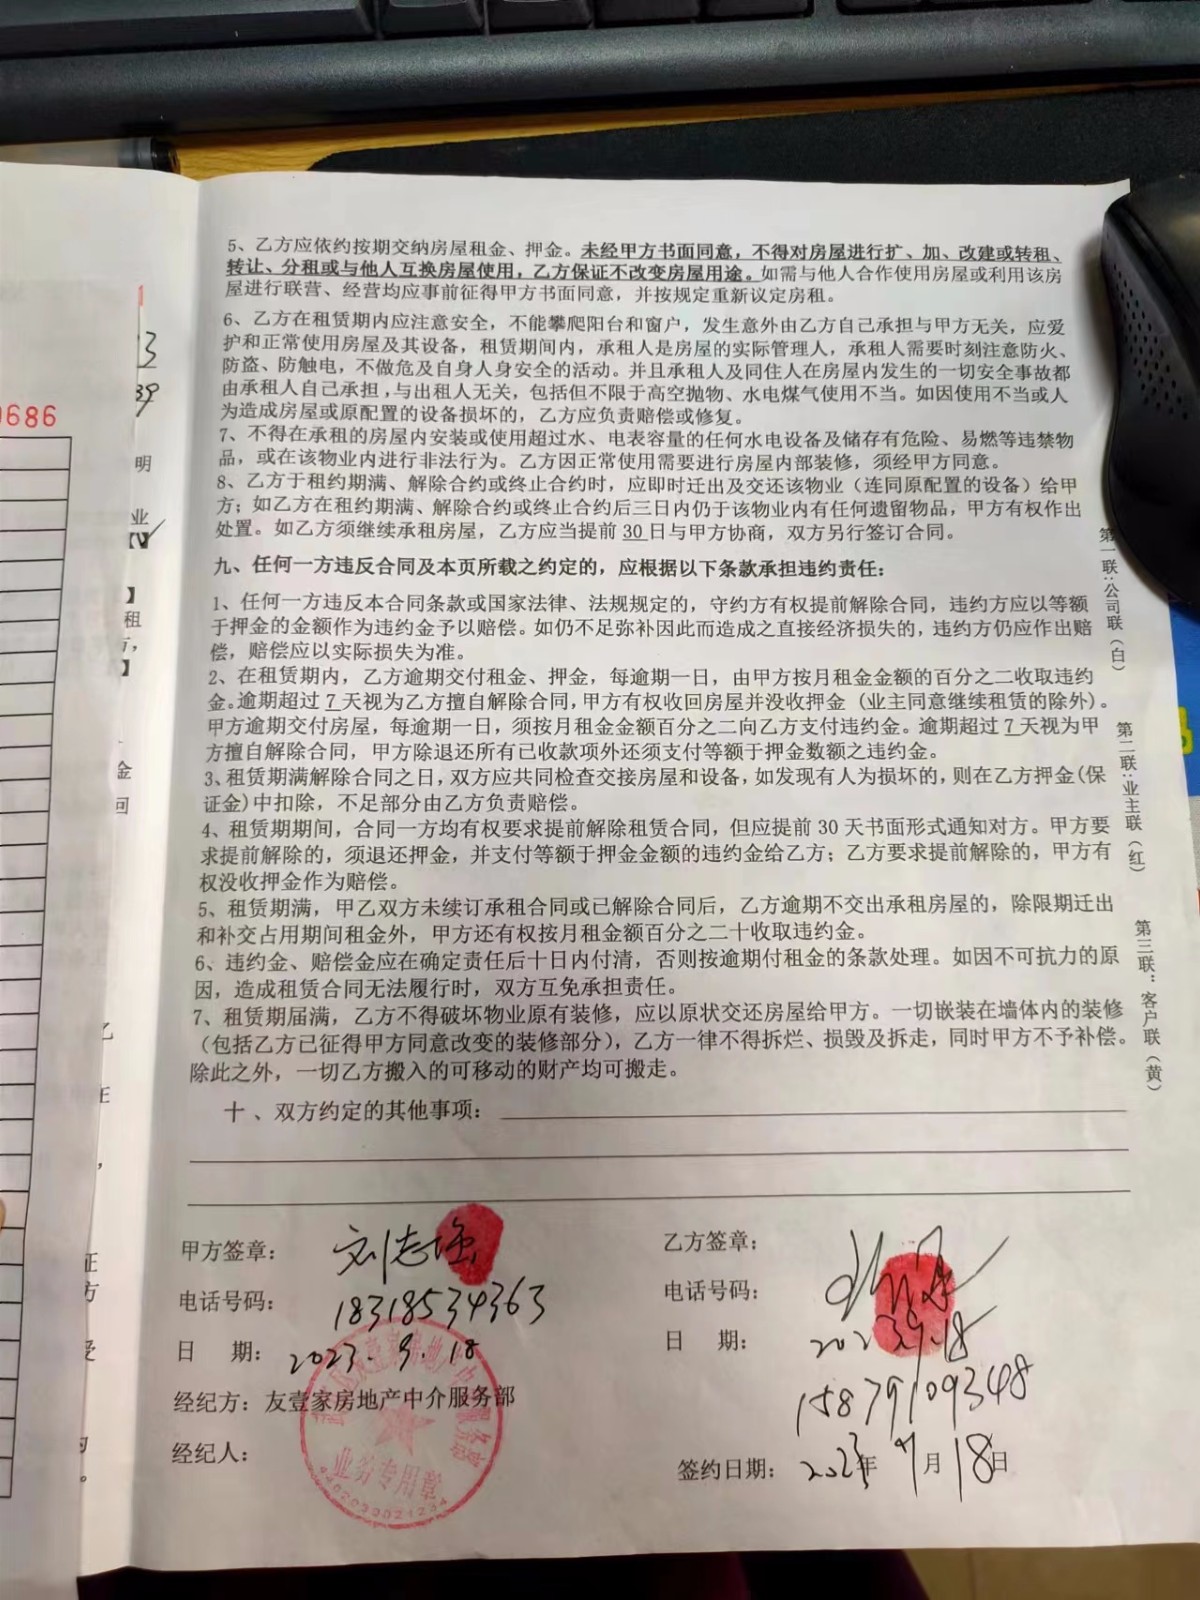 5、乙方应依约按期交纳房屋租金、押金。未经甲方书面同意，不得对房屋进行扩、加、改建或转租、
转让、分租或与他人互换房屋使用，乙方保证不改变房屋用途。如需与他人合作使用房屋或利用该房
屋进行联营、经营均应事前征得甲方书面同意，并按规定重新议定房租。
6、乙方在租赁期内应注意安全，不能攀爬阳台和窗户，发生意外由乙方自己承担与甲方无关，应爱
护和正常使用房屋及其设备，租赁期间内，承租人是房屋的实际管理人，承租人需要时刻注意防火、
防盗、防触电，不做危及自身人身安全的活动。并且承租人及同住人在房屋内发生的一切安全事故都
由承租人自己承担，与出租人无关，包括但不限于高空抛物、水电煤气使用不当。如因使用不当或人
为造成房屋或原配置的设备损坏的，乙方应负责赔偿或修复。
7、不得在承租的房屋内安装或使用超过水、电表容量的任何水电设备及储存有危险、易燃等违禁物
品，或在该物业内进行非法行为。乙方因正常使用需要进行房屋内部装修，须经甲方同意。
8、乙方于租约期满、解除合约或终止合约时，应即时迁出及交还该物业（连同原配置的设备）给甲
方；如乙方在租约期满、解除合约或终止合约后三日内仍于该物业内有任何遗留物品，甲方有权作出
处置。如乙方须继续承租房屋，乙方应当提前 30 日与甲方协商，双方另行签订合同。
九、任何一方违反合同及本页所载之约定的，应根据以下条款承担违约责任：
1、任何一方违反本合同条款或国家法律、法规规定的，守约方有权提前解除合同，违约方应以等额
于押金的金额作为违约金予以赔偿。如仍不足弥补因此而造成之直接经济损失的，违约方仍应作出赔
偿，赔偿应以实际损失为准。
2、在租赁期内，乙方逾期交付租金、押金，每逾期一日，由甲方按月租金金额的百分之二收取违约
金。逾期超过 7 天视为乙方擅自解除合同，甲方有权收回房屋并没收押金（业主同意继续租赁的除外）。
甲方逾期交付房屋，每逾期一日，须按月租金金额百分之二向乙方支付违约金。逾期超过 7 天视为甲
方擅自解除合同，甲方除退还所有已收款项外还须支付等额于押金数额之违约金。
3、租赁期满解除合同之日，双方应共同检查交接房屋和设备，如发现有人为损坏的，则在乙方押金(保
证金)中扣除，不足部分由乙方负责赔偿。
4、租赁期期间，合同一方均有权要求提前解除租赁合同，但应提前 30 天书面形式通知对方。甲方要
求提前解除的，须退还押金，并支付等额于押金金额的违约金给乙方；乙方要求提前解除的，甲方有
权没收押金作为赔偿。
5、租赁期满，甲乙双方未续订承租合同或已解除合同后，乙方逾期不交出承租房屋的，除限期迁出
和补交占用期间租金外，甲方还有权按月租金额百分之二十收取违约金。
6、违约金、赔偿金应在确定责任后十日内付清，否则按逾期付租金的条款处理。如因不可抗力的原
因，造成租赁合同无法履行时，双方互免承担责任。
7、租赁期届满，乙方不得破坏物业原有装修，应以原状交还房屋给甲方。一切嵌装在墙体内的装修
（包括乙方已征得甲方同意改变的装修部分），乙方一律不得拆烂、损毁及拆走，同时甲方不予补偿。
除此之外，一切乙方搬入的可移动的财产均可搬走。
十、双方约定的其他事项：
甲方签章： 刘志强
电话号码： 18318534363
日 期： 2023.9.18
经纪方：友壹家房地产中介服务部
经纪人：
业务专用章
乙方签章：
电话号码：
日 期： 2023.9.18
15879109348
签约日期： 2023年9月18日
第一联:公司联（白）
第二联:业主联（红）
第三联：客户联（黄）
0686
明
业
租
金
回